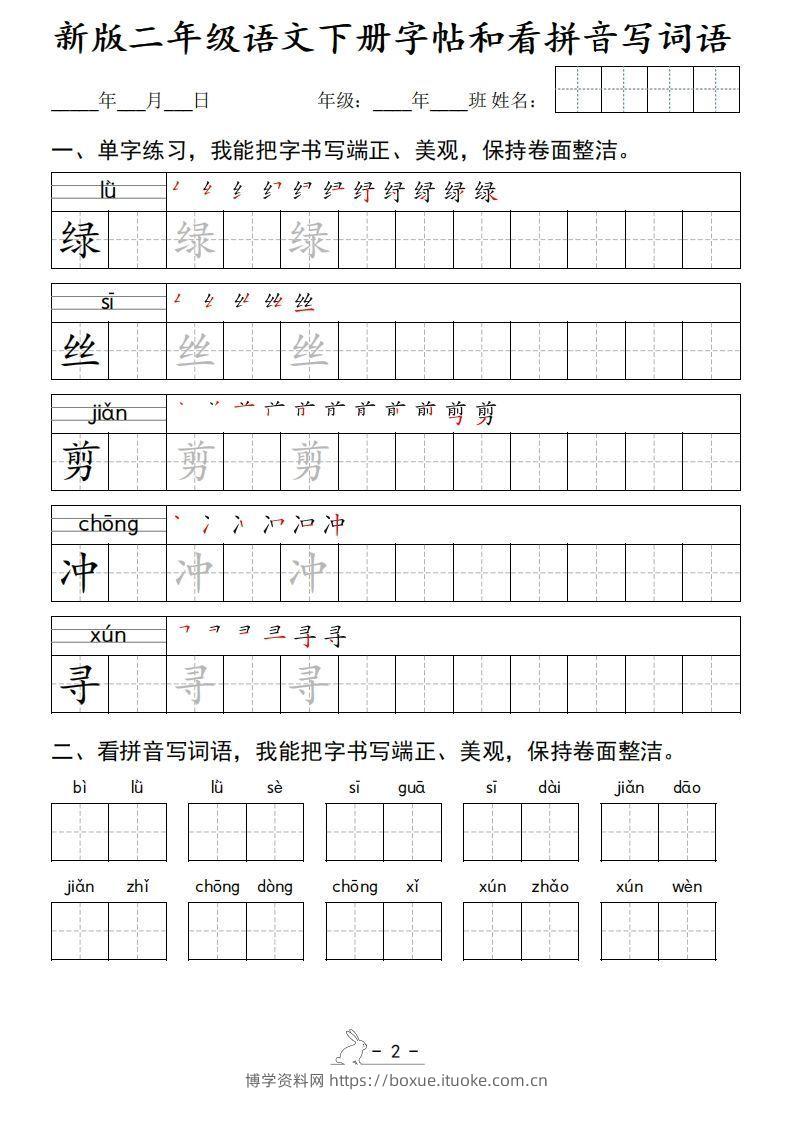 新版二年级语文下册字帖和看拼音写词语
_____年___月___日 年级：____年____班 姓名：
一、单字练习，我能把字书写端正、美观，保持卷面整洁。
lǜ
绿 绿 绿
sī
丝 丝 丝
jiǎn
剪 剪 剪
chōng
冲 冲 冲
xún
寻 寻 寻
二、看拼音写词语，我能把字书写端正、美观，保持卷面整洁。
bì lǜ lǜ sè sī guā sī dài jiǎn dāo
jiǎn zhǐ chōng dòng chōng xǐ xún zhǎo xún wèn
- 2 -
博学资料网 https://boxue.ituoke.com.cn